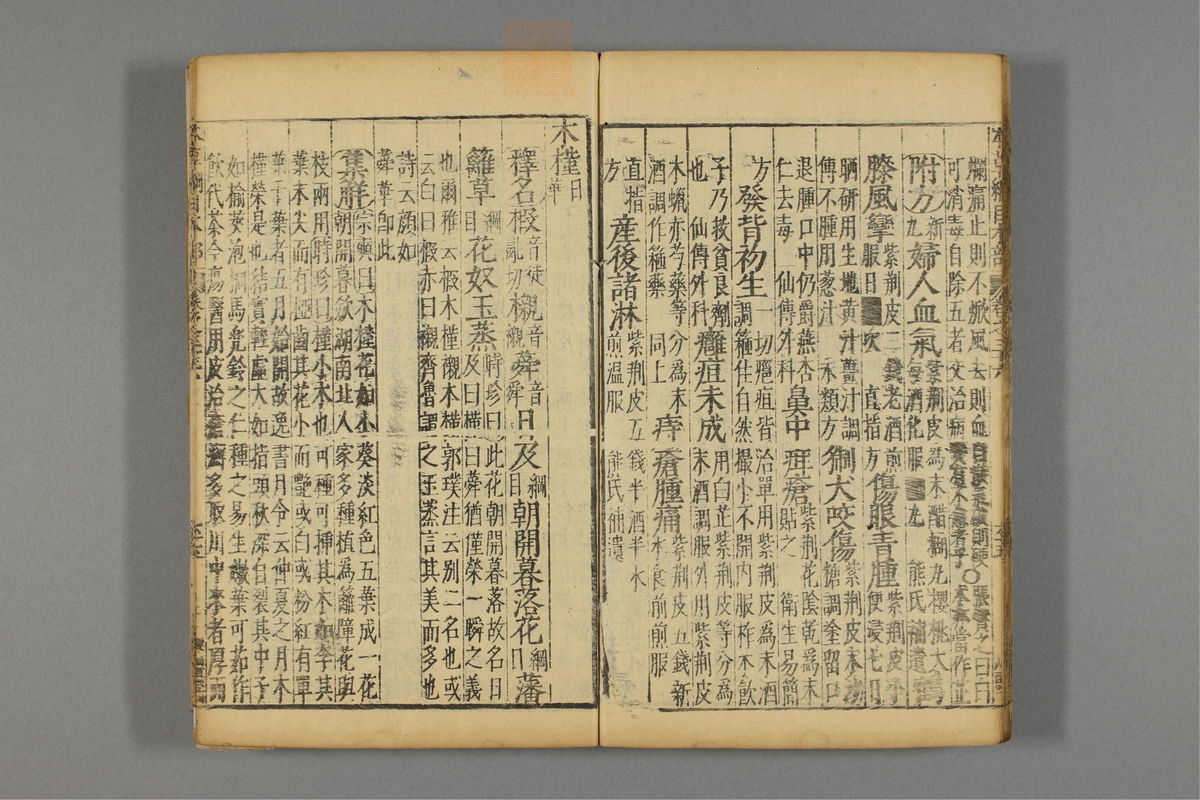 爛腐止則不焮風去則血
可消毒自除五者交治病
附方新九婦人血氣紫荆皮為末醋糊丸櫻桃大
每酒化服一丸熊氏補遺
鶴膝風攣紫荆皮三錢老酒煎
服日二次直指方傷眼青腫紫荆皮小便浸七日
晒研用生地黄汁薑汁調
傅不腫用葱汁永類方猘犬咬傷紫荆皮末沙糖調塗留口
退腫口中仍嚼嚥杏
仁去毒仙傳外科鼻中疳瘡紫荆花陰乾為末
貼之衛生易簡
方發背初生一切癰疽皆治單用紫荆皮為末酒
調箍住自然撮小不開内服柞木飲
子乃救貧良劑
也仙傳外科癰疽未成用白芷紫荆皮等分為
末酒調服外用紫荆皮
木蠟赤芍藥等分為末
酒調作箍藥同上痔瘡腫痛紫荆皮五錢新
水食前煎服
直指
方産後諸淋紫荆皮五錢半酒半水
煎温服熊氏補遺
木槿日華
釋名椴音徒亂切櫬音襯蕣音舜日及綱目朝開暮落花綱目藩
籬草綱目花奴玉蒸時珍曰此花朝開暮落故名日
及曰槿曰蕣猶僅榮一瞬之義
也爾雅云椴木槿櫬木槿郭璞注云别二名也或
云白曰椴赤曰櫬齊魯謂之王蒸言其美而多也
詩云顔如
蕣華即此
集解宗奭曰木槿花如小葵淡紅色五葉成一花
朝開暮斂湖南北人家多種植為籬障花與
枝兩用時珍曰槿小木也可種可插其木如李其
葉末尖而有椏齒其花小而艷或白或粉紅有單
葉千葉者五月始開故逸書月令云仲夏之月木
槿榮是也結實輕虛大如指頭秋深自裂其中子
如榆莢泡桐馬兜鈴之仁種之易生嫩葉可茹作
飲代茶今瘍醫用皮治瘡癬多取川中來者厚而